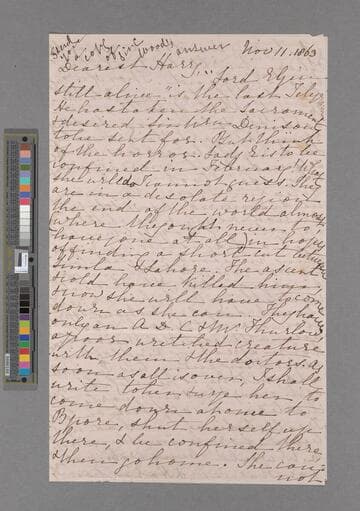 Send a copy of Sir C Wood's answer
Nov 11. 1863
Dearest Harry,
"Lord Elgin
still alive" is the last Telegram
He has taken the Sacrament
& desired Sir Wm Denison
to be sent for. But think
of the horror. Lady E is to be
confined in February! What
she will do I cannot guess. They
are in a desolate region
the end of the world almost
(where they ought never to
have gone at all) in hopes
of finding a short cut between
Simla & Lahore. The ascent
& cold have killed him &
now she will have to come
down as she can. They have
only an A D C & Mr Thurlow
a poor wretched creature
with them & the doctors. As
soon as all is over, I shall
write to her, & urge her to
come down at once to
Bpore, shut herself up
there, & be confined there,
& then go home. She can
not